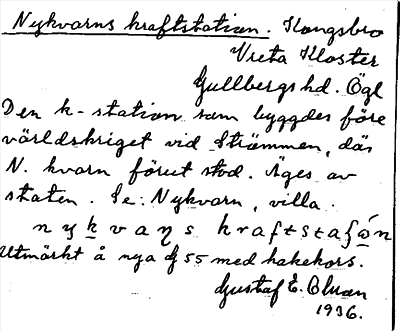 Nykvarns kraftstation. Kungsbro
Vreta Kloster
Gullbergs hd. Ögl
Den k-station som byggdes före
världskriget vid Strömmen, där
N. kvarn förut stod. Äges av
staten. Se: Nykvarn, villa.
nykvaɳs kraftstaʃón
Utmärkt å nya 55 med hakekors.
Gustaf E. Bluan
1936.